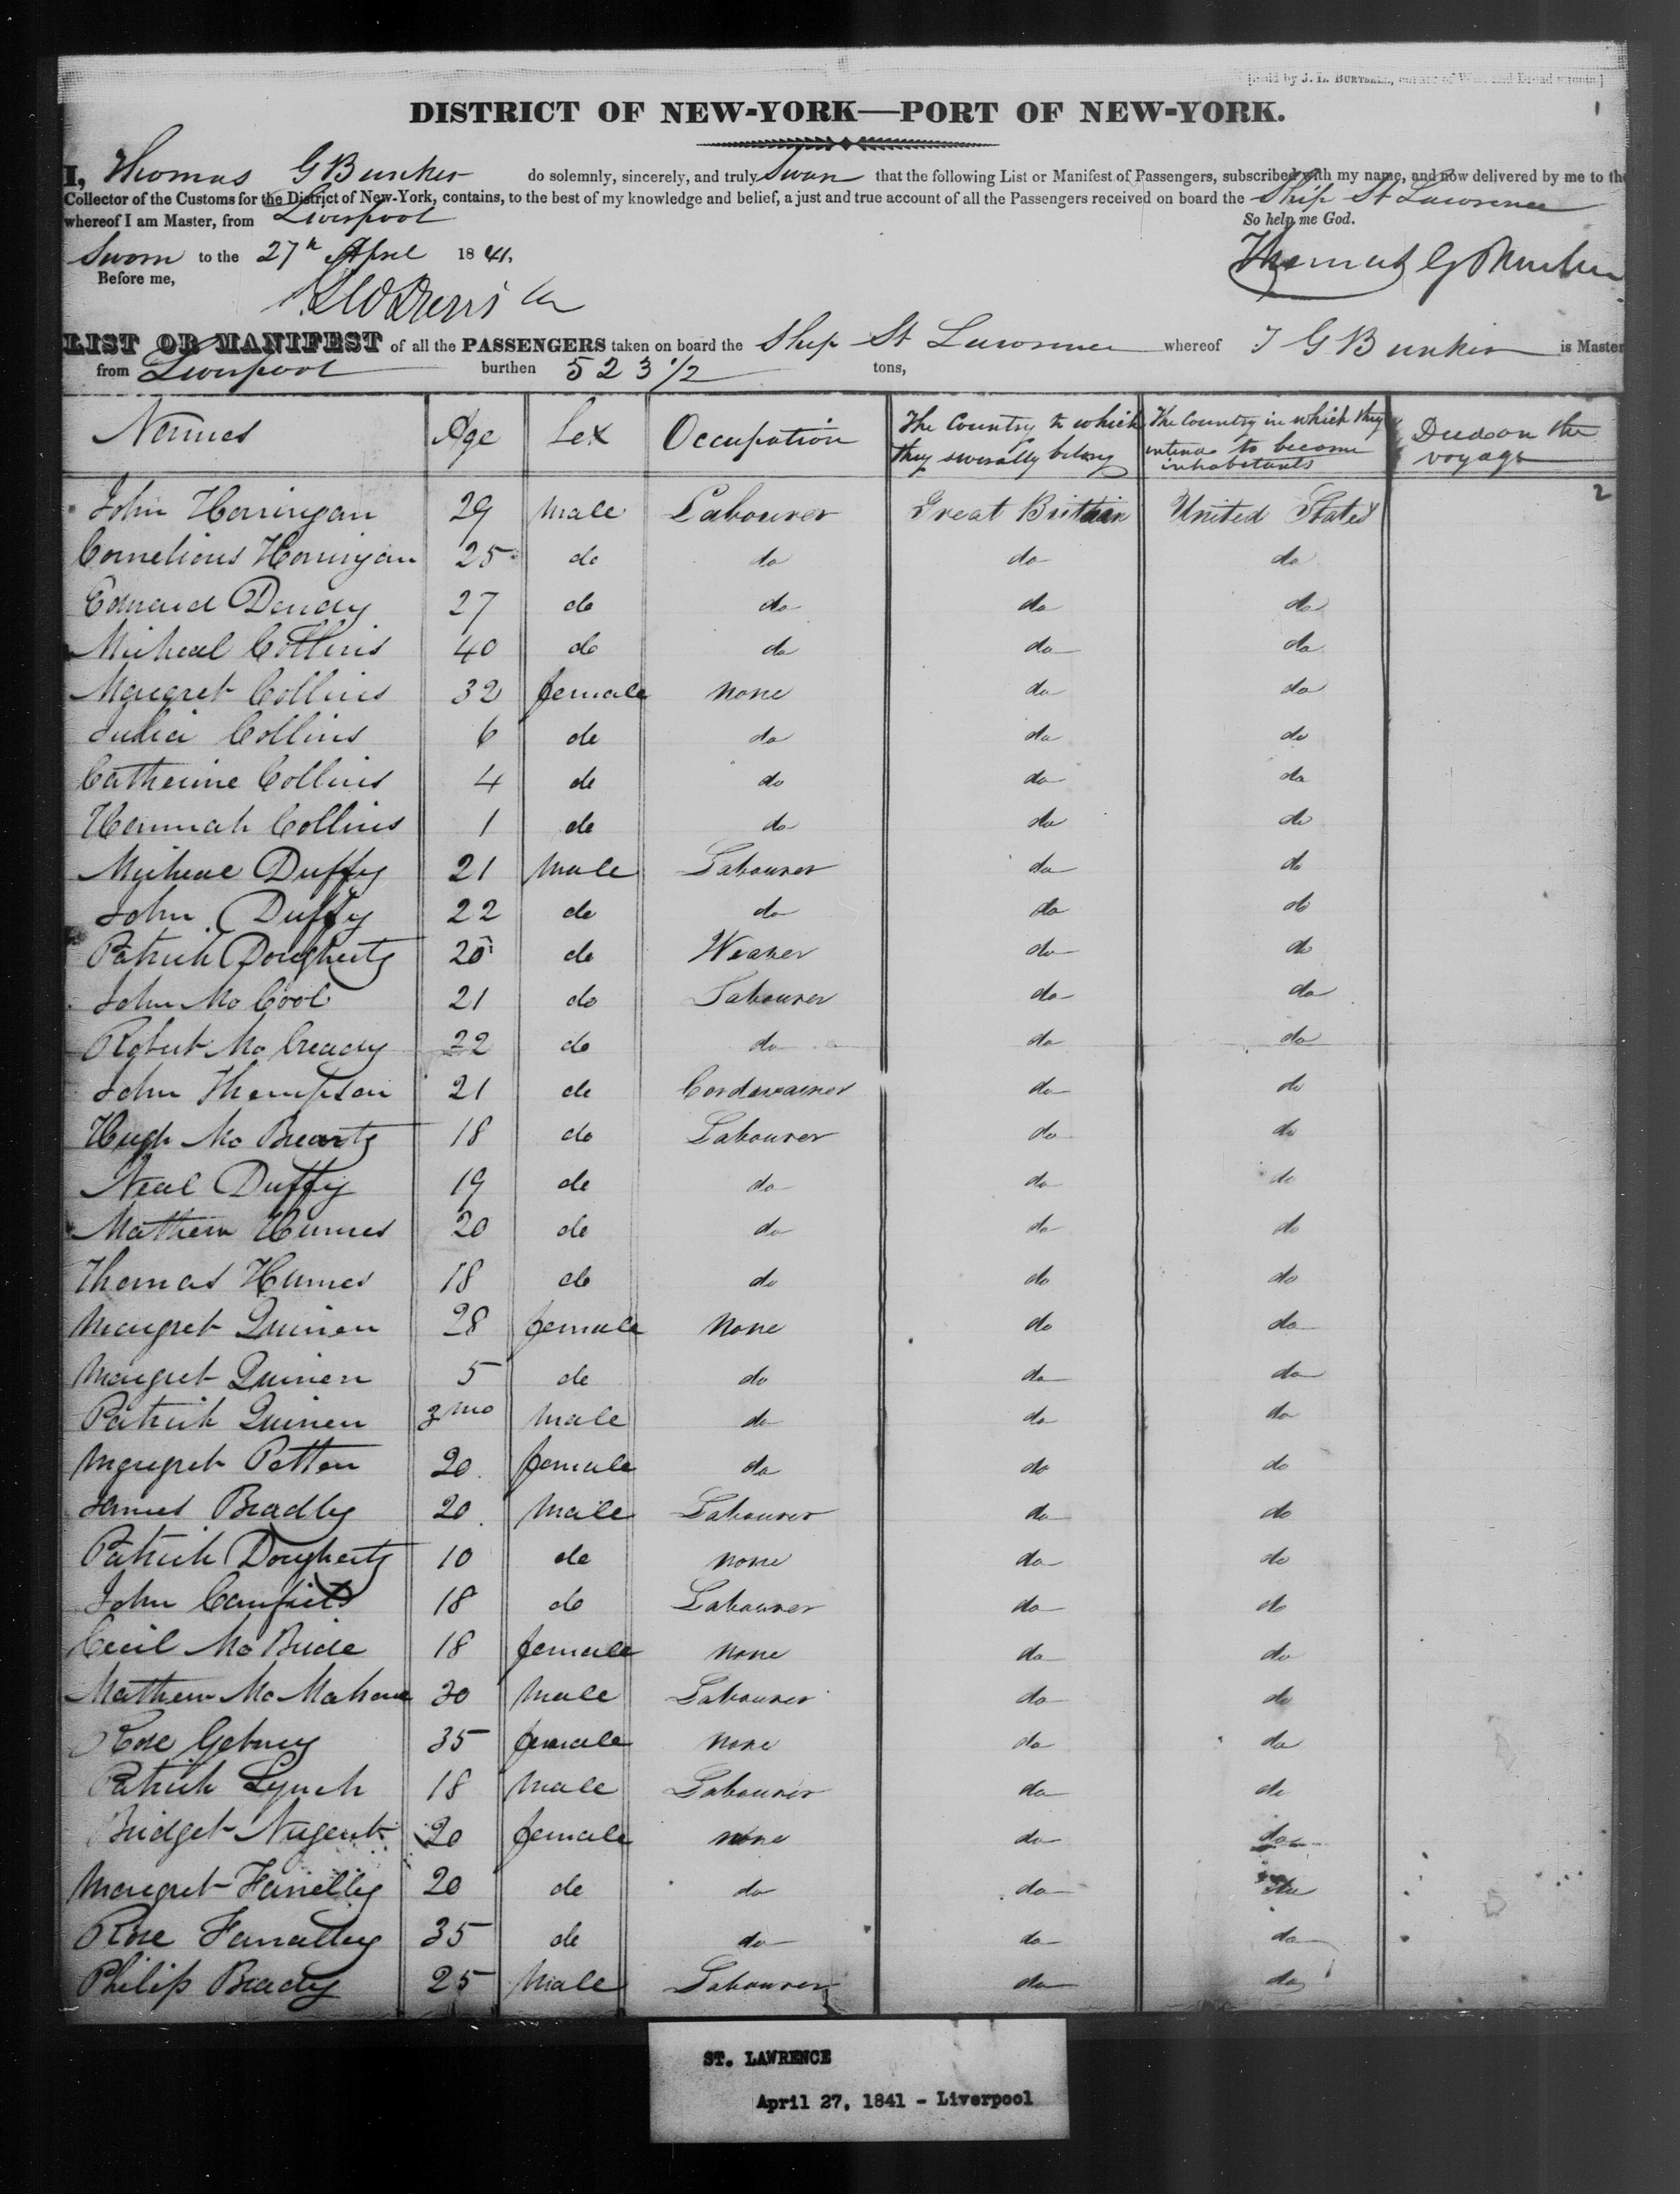 [Sold by J. L. BURTSELL, corner of Wall and Broad streets]
DISTRICT OF NEW-YORK—PORT OF NEW-YORK.
1
I, Thomas G Bunker do solemnly, sincerely, and truly Swear that the following List or Manifest of Passengers, subscribed with my name, and now delivered by me to the
Collector of the Customs for the District of New-York, contains, to the best of my knowledge and belief, a just and true account of all the Passengers received on board the Ship St Lawrence
whereof I am Master, from Liverpool So help me God.
Sworn to the 27th April 1841.
Before me, Thomas G Bunker
LIST OR MANIFEST of all the PASSENGERS taken on board the Ship St Lawrence whereof T G Bunker is Master
from Liverpool burthen 523 1/2 tons,
Names Age Sex Occupation The Country to which they severally belong The Country in which they intend to become inhabitants Died on the voyage
2
John Horringan 29 Male Labourer Great Britain United States
Cornelious Horringan 25 do do do do
Edward Dendy 27 do do do do
Micheal Collins 40 do do do do
Margret Collins 32 female none do do
Julia Collins 6 do do do do
Catherine Collins 4 do do do do
Hannah Collins 1 do do do do
Micheal Duffy 21 Male Labourer do do
John Duffy 22 do do do do
Patrick Dougherty 20 do Weaver do do
John Mc Cool 21 do Labourer do do
Robert Mc Cready 22 do do do do
John Thompson 21 do Cordwainer do do
Hugh Mc Brearty 18 do Labourer do do
Neal Duffy 19 do do do do
Mathew Humes 20 do do do do
Thomas Humes 18 do do do do
Margret Quinen 28 female None do do
Margret Quinen 5 do do do do
Patrick Quinen 3 mo Male do do do
Margret Patten 20 female do do do
James Bradley 20 Male Labourer do do
Patrick Dougherty 10 do none do do
John Canfield 18 do Labourer do do
Cecil Mc Bride 18 female none do do
Mathew Mc Mahone 30 Male Labourer do do
Rose Gebney 35 female none do do
Patrick Lynch 18 Male Labourer do do
Bridget Nugent 20 female none do do
Margret 20 do do do do
Rose 35 do do do do
Philip Brady 25 Male Labourer do do
ST. LAWRENCE
April 27, 1841 - Liverpool